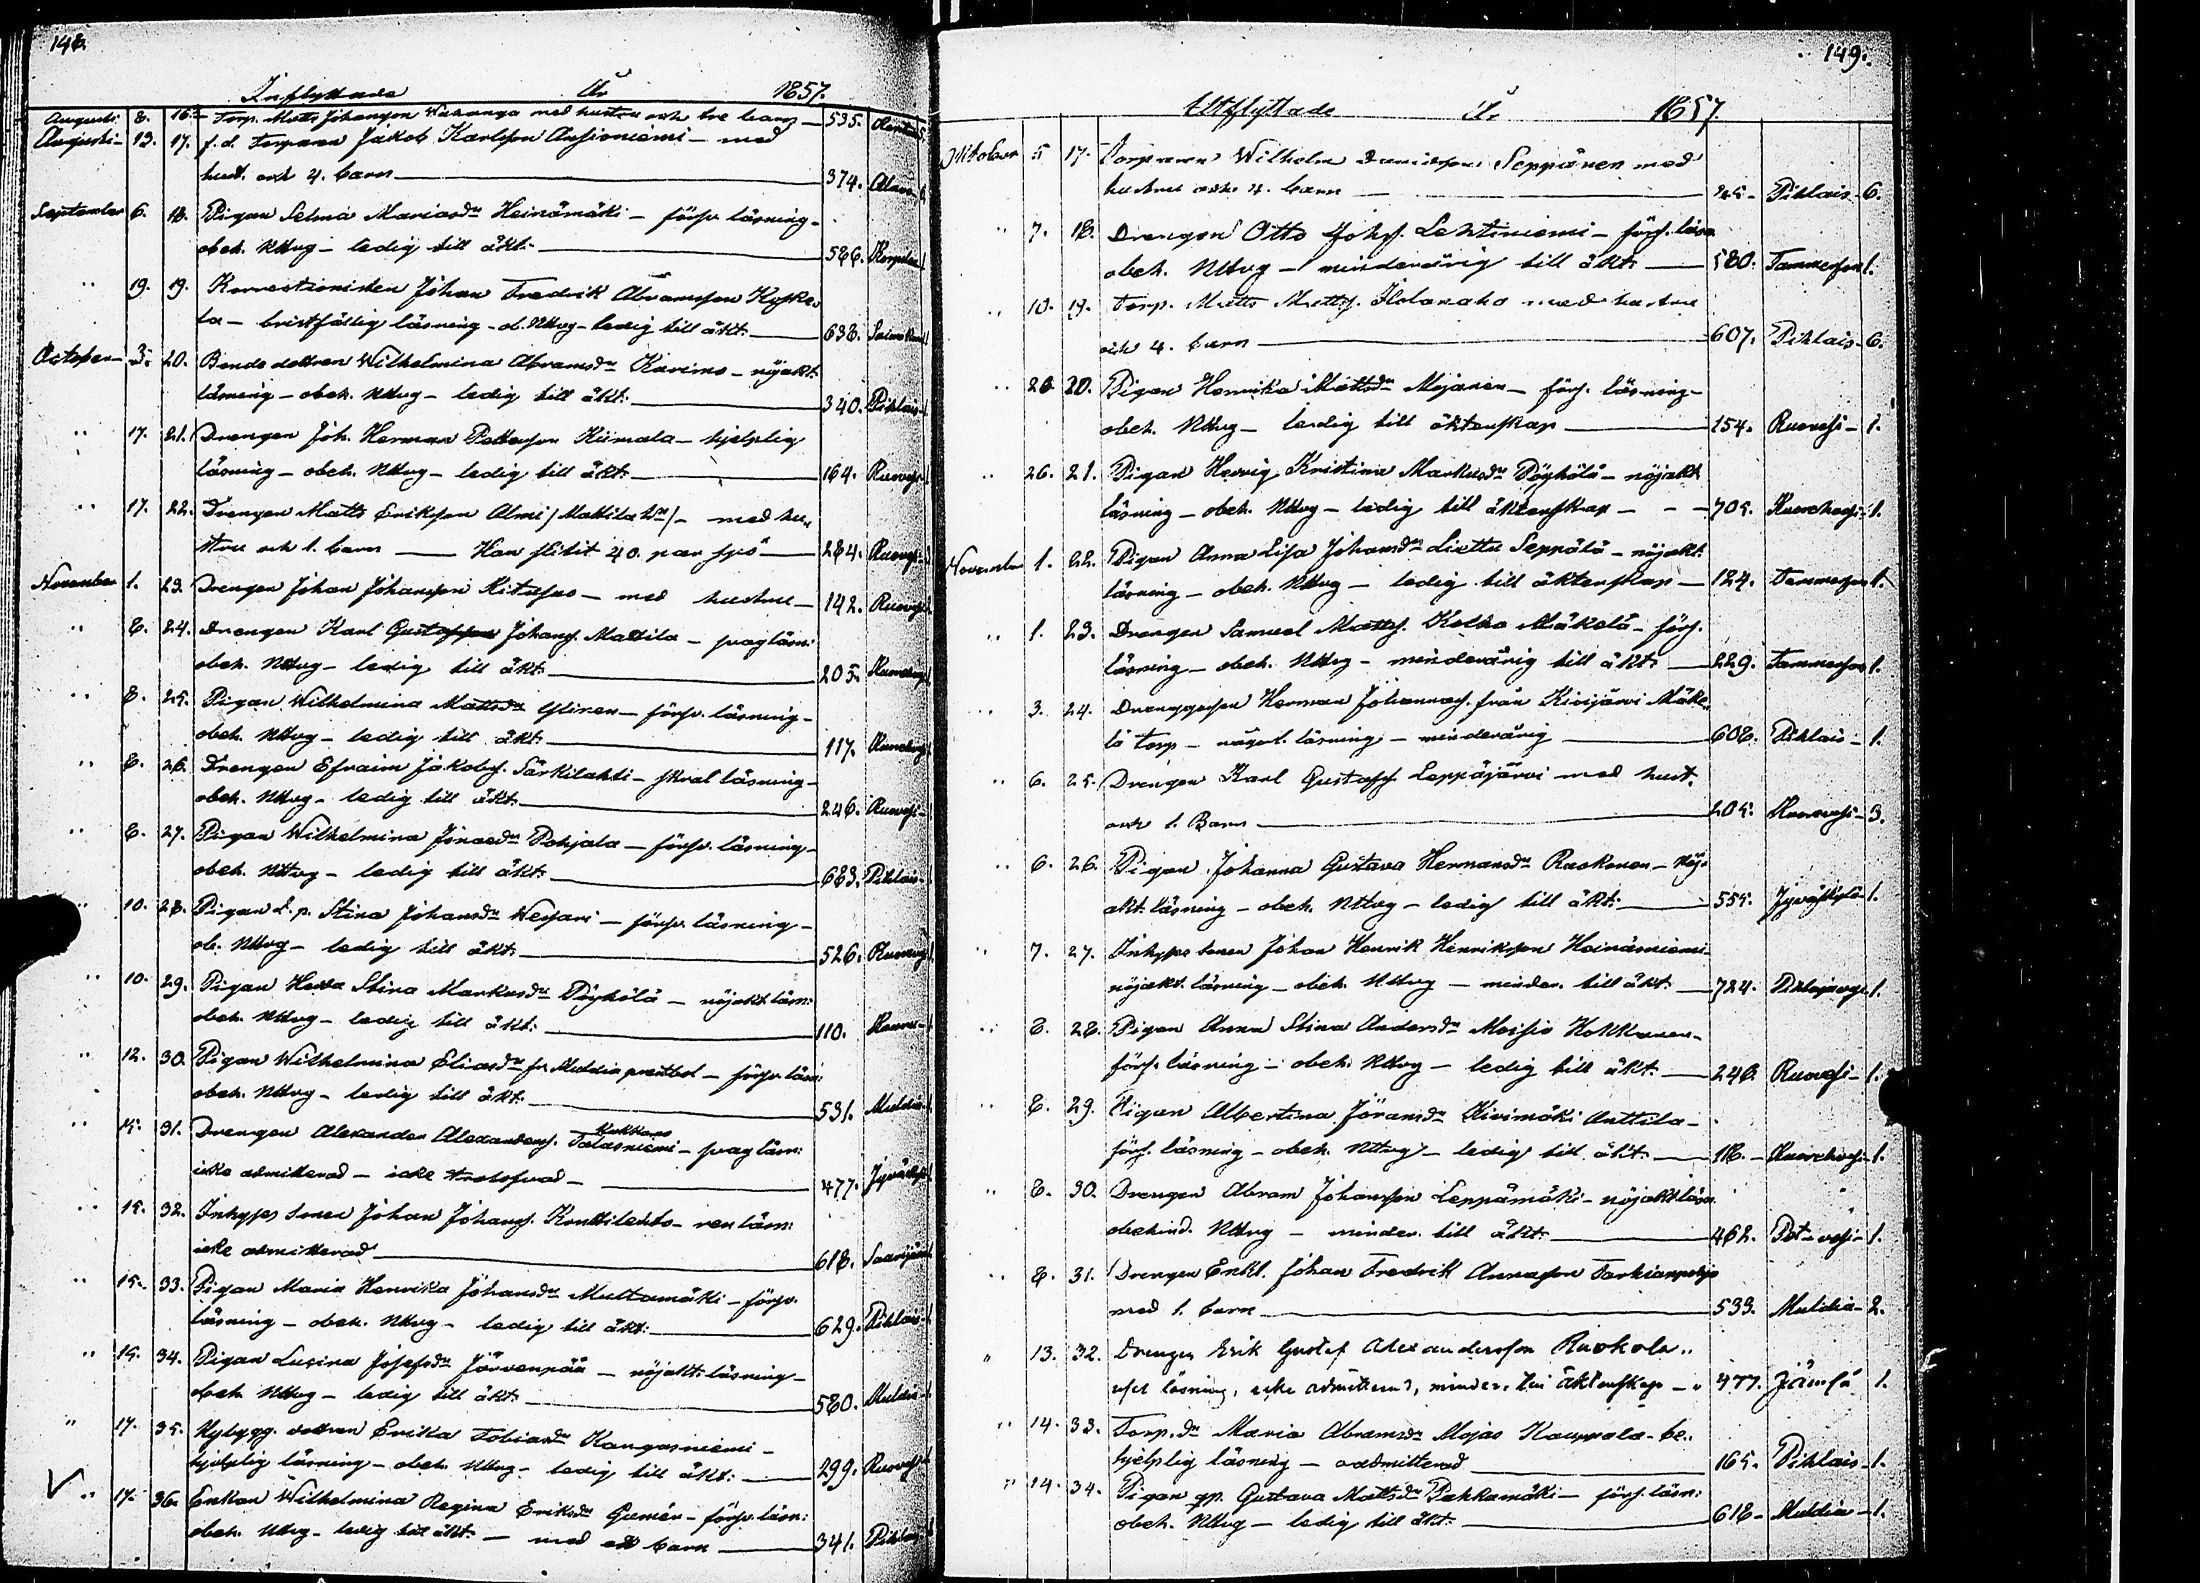 148.
Inflyttade År 1857.
Augusti 8. 16. Torp. Matts Johansson med hustru och tre barn 535.
Augusti 13. 17. f. d. Torparen Jakob Karlsson Ansioniemi - med
hust. och 4. barn 374. Alavo
September 6. 18. Pigan Selma Mariasdr Heinämäki - försv. läsning -
obeh. Nttvg - ledig till äkt. 586.
" 19. 19. Korrectionisten Johan Fredrik Abramsson
bristfällig läsning - ob. Nttvg - ledig till äkt. 638.
October 3. 20. Bonde dottren Wilhelmina Abramsdr Karimo - nöjakt.
läsning - obeh. Nttvg - ledig till äkt. 340. Pihlais
" 17. 21. Drengen Joh. Herman Pettersson Kiimala - hjelplig
läsning - obeh. Nttvg - ledig till äkt. 164. Ruovesi
" 17. 22. Drengen Matts Eriksson Almi / Mattila / - med hu-
stru och 1. barn Han slitit 40. par spö 284. Ruovesi
November 1. 23. Drengen Johan Johansson Ritusuo - med hustru - 142. Ruovesi
" 8. 24. Drengen Karl Gustafsson Johans. Mattila - svag läsn:
obeh. Nttvg - ledig till äkt. 205.
" 8. 25. Pigan Wilhelmina Mattsdr Ylinen - försv. läsning -
obeh. Nttvg - ledig till äkt. 117.
" 8. 26. Drengen Efraim Jakobs. Särkilahti - skral läsning -
obeh. Nttvg - ledig till äkt. 246. Ruovesi
" 8. 27. Pigan Wilhelmina Jonaedr Pohjala - försv. läsning -
obeh. Nttvg - ledig till äkt. 683. Pihlais
" 10. 28. Pigan d. p. Stina Johansdr Wesari - försv. läsning -
ob. Nttvg - ledig till äkt. 526. Ruovesi
" 10. 29. Pigan Hedda Stina Markusdr Pöyhölä - nöjakt läsn:
obeh. Nttvg - ledig till äkt: 110.
" 12. 30. Pigan Wilhelmina Eliasdr fr. Multia prestbol - försv. läsn:
obeh. Nttvg - ledig till äkt. 531. Multia
" 15. 31. Drengen Alexander Alexanders. Talasniemi - svag läsn:
icke admitterad - icke 477. Jyväsk
" 15. 32. Inhyses sonen Johan Johans. Konttilehto - ren läsn:
icke admitterad 618. Saarijärvi
" 15. 33. Pigan Maria Henrika Johansdr Multamäki - försv.
läsning - obeh. Nttvg - ledig till äkt: 629. Pihlais
" 15. 34. Pigan Lusina Josefsdr Järvenpää - nöjakt. läsning -
obeh Nttvg - ledig till äkt. 580. Multia
" 17. 35. Nybygg. dottren Erika Tobiasdr Kangasniemi -
hjelplig läsning - obeh. Nttvg - ledig till äkt: 299. Ruovesi
V " 17. 36. Enkan Wilhelmina Regina Eriksdr Gumér - försv. läsn:
obeh. Nttvg - ledig till äkt. - med ett barn 341. Pihlais
149.
Utflyttade År 1857
Oktober 5 17. Torparen Wilhelm Seppänen med
hustru och 4. barn Pihlais 6.
" 7. 18. Drengen Otto Johs. Lehtiniemi - försv. läsn
obeh. Nttvg - minderårig till äkt. 580. Tammerfors 1.
" 10. 19. Torp. Matts Matts. Ilolunaho med hustru
och 4. barn 607. Pihlais 6.
" 26. 20. Pigan Henrika Mattsdr Mojanen - försv. läsning -
obeh. Nttvg - ledig till äktenskap 154. Ruovesi - 1.
" 26. 21. Pigan Hedvig Kristina Markusdr Pöyhölä - nöjakt
läsning - obeh. Nttvg - ledig till äktenskap - - 705. 1.
November 1. 22. Pigan Anna Lisa Johansdr Lisettu Seppälä - nöjakt.
läsning - obeh. Nttvg - ledig till äktenskap - 124. Tammerfors 1.
" 1. 23. Drengen Samuel Matts. Kolho Mäkelä - försv.
läsning - obeh. Nttvg - minderårig till äkt. 229. Tammerfors 1.
" 3. 24. Drenggossen Herman Johannas. från Kivijärvi Mäke-
lä torp - någorl. läsning - minderårig 608. Pihlais - 1.
" 6. 25. Drengen Karl Gustafss. Leppäjärvi med hust.
och 1. Barn 205. Ruovesi - 3.
" 6. 26. Pigan Johanna Gustava Hermansdr Raskonen - Nöj-
akt. läsning - obeh. Nttvg - ledig till äkt: 555. Jyväskylä 1.
" 7. 27. Inhyses sonen Johan Henrik Henriksson Heinäsniemi -
nöjakt. läsning - obeh. Nttvg - minder. till äkt. 724. 1.
" 8. 28. Pigan Anna Stina Andersdr Moisio Hokkanen -
försv. läsning - obeh. Nttvg - ledig till äkt. 246. Ruovesi - 1.
" 8. 29. Pigan Albertina Göransdr Kivimäki Anttila -
försv. läsning - obeh. Nttvg - ledig till äkt. 116. 1.
" 8. 30. Drengen Abram Johansson Leppämäki - nöjakt läsn
obehind. Nttvg - minder. till äkt. 462. 1.
" 8. 31. Drengen Enkl. Johan Fredrik Annasson
med 1. barn 533. Multia - 2.
" 13. 32. Drengen Erik Gustaf Alexandersson Ruokola
usel läsning, icke admitterad, minder. till äktenskap - 477. Jämsä 1.
" 14. 33. Torp. dr Maria Abramsdr Mojas Kauppala - be-
hjelplig läsning - oadmitterad 165. Pihlais 1.
" 14. 34. Pigan gp. Gustava Mattsdr Pahkamäki - försv. läsn:
obeh. Nttvg - ledig till äkt. 618 - Multia - 1.